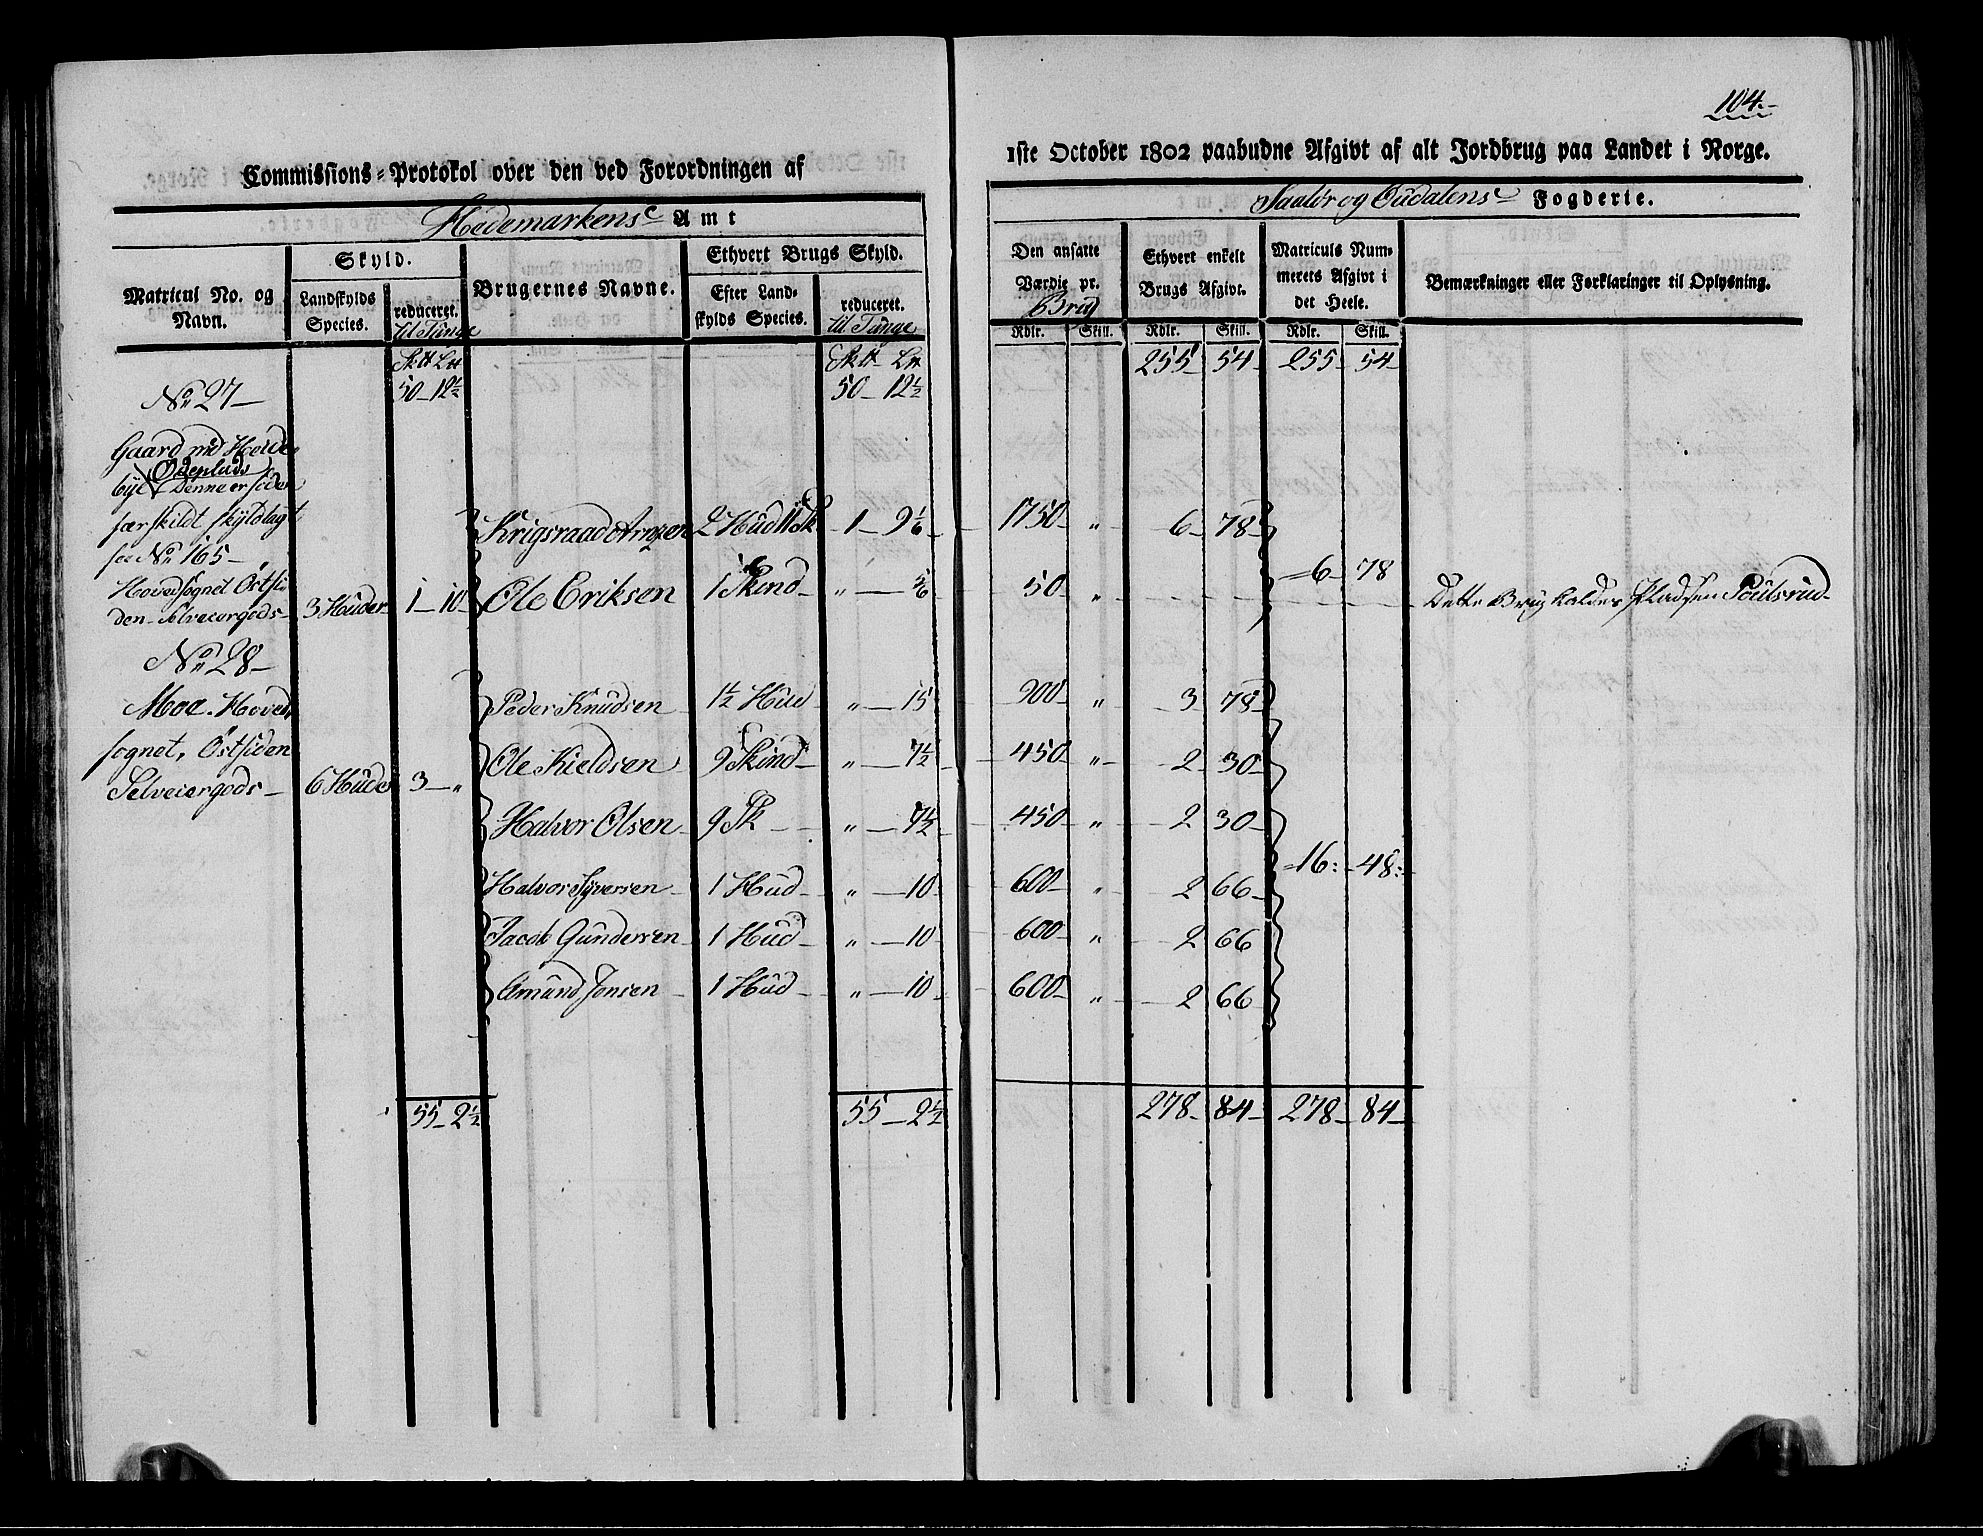 104.
Commissions-Protokol over den ved Forordningen af 1ste October 1802 paabudne Afgivt af alt Jordbrug paa Landet i Norge.
Hedemarkens Amt
Saalör og Oüdalens Fogderie.
Matricul No. og Navn.
Skyld.
Landskylds Species.
reduceret. til Tünge
Brugernes Navne.
Ethvert Brugs Skyld.
Efter Landskylds Species.
reduceret. til Tünge
Den ansatte Værdie pr. Brug
Ethvert enkelt Brugs Afgivt.
Matriculs Nummerets Afgivt i det Heele.
Bemærkninger eller Forklaringer til Oplysning.
Rdlr. Skill. Rdlr. Skill. Rdlr. Skill.
255 54 255 54
No 27 50 12½ 50 12½
Gaard med
Ödeplads
Denne er siden
særskildt skyldlagt
No 165
Krigsraad 2 Hüd 11 Sk 1 9 1/6 1750 " 6 78
6 78
Hovedsognet Östsiden Selveiergods 3 Hüder 1 10
Ole Eriksen 1 Skind " 5/6 50 "
Dette Brug kaldes Pladsen Poülsrüd
No 28
Moe. Hovedsognet, Östsiden
Selveiergods 6 Hüder 3 "
Peder Knüdsen 1½ Hüd " 15 900 " 3 78
Ole Kieldsen 9 Skind " 7½ 450 " 2 30
Halvor Olsen 9 Sk " 7½ 450 " 2 30
16 48
Halvor Syversen 1 Hüd " 10 600 " 2 66
Jacob Gündersen 1 Hüd " 10 600 " 2 66
Amünd Jonsen 1 Hüd " 10 600 " 2 66
55 2½ 55 2½ 278 84 278 84